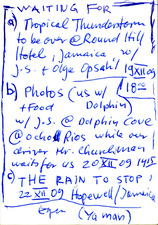 WAITING FOR
a) Tropical Thunderstorm
to be over @ Round Hill
Hotel, Jamaica w/
J.S. + Olga Opsahl
19 XII 09
18
b) Photos (us w/
+ Food Dolphin)
w/ J.S. @ Dolphin Cove
@ Ocho Rios while our
driver Mr. Churchman
waits for us 20 XII 09 1415
c) THE RAIN TO STOP!
22 XII 09 Hopewell/Jamaica
(Ya man)